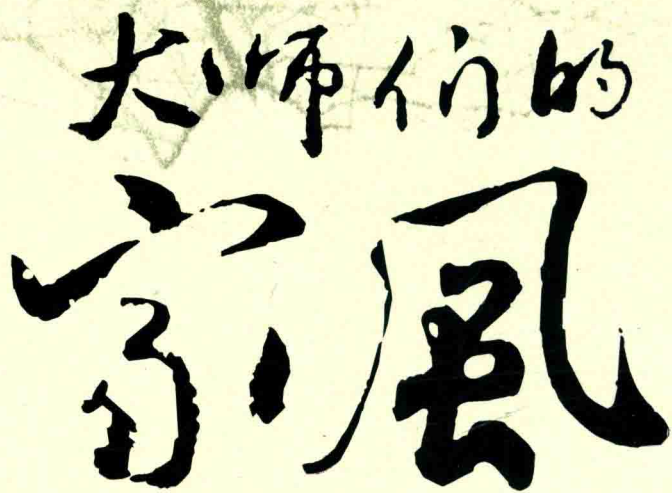 大师们的
家風